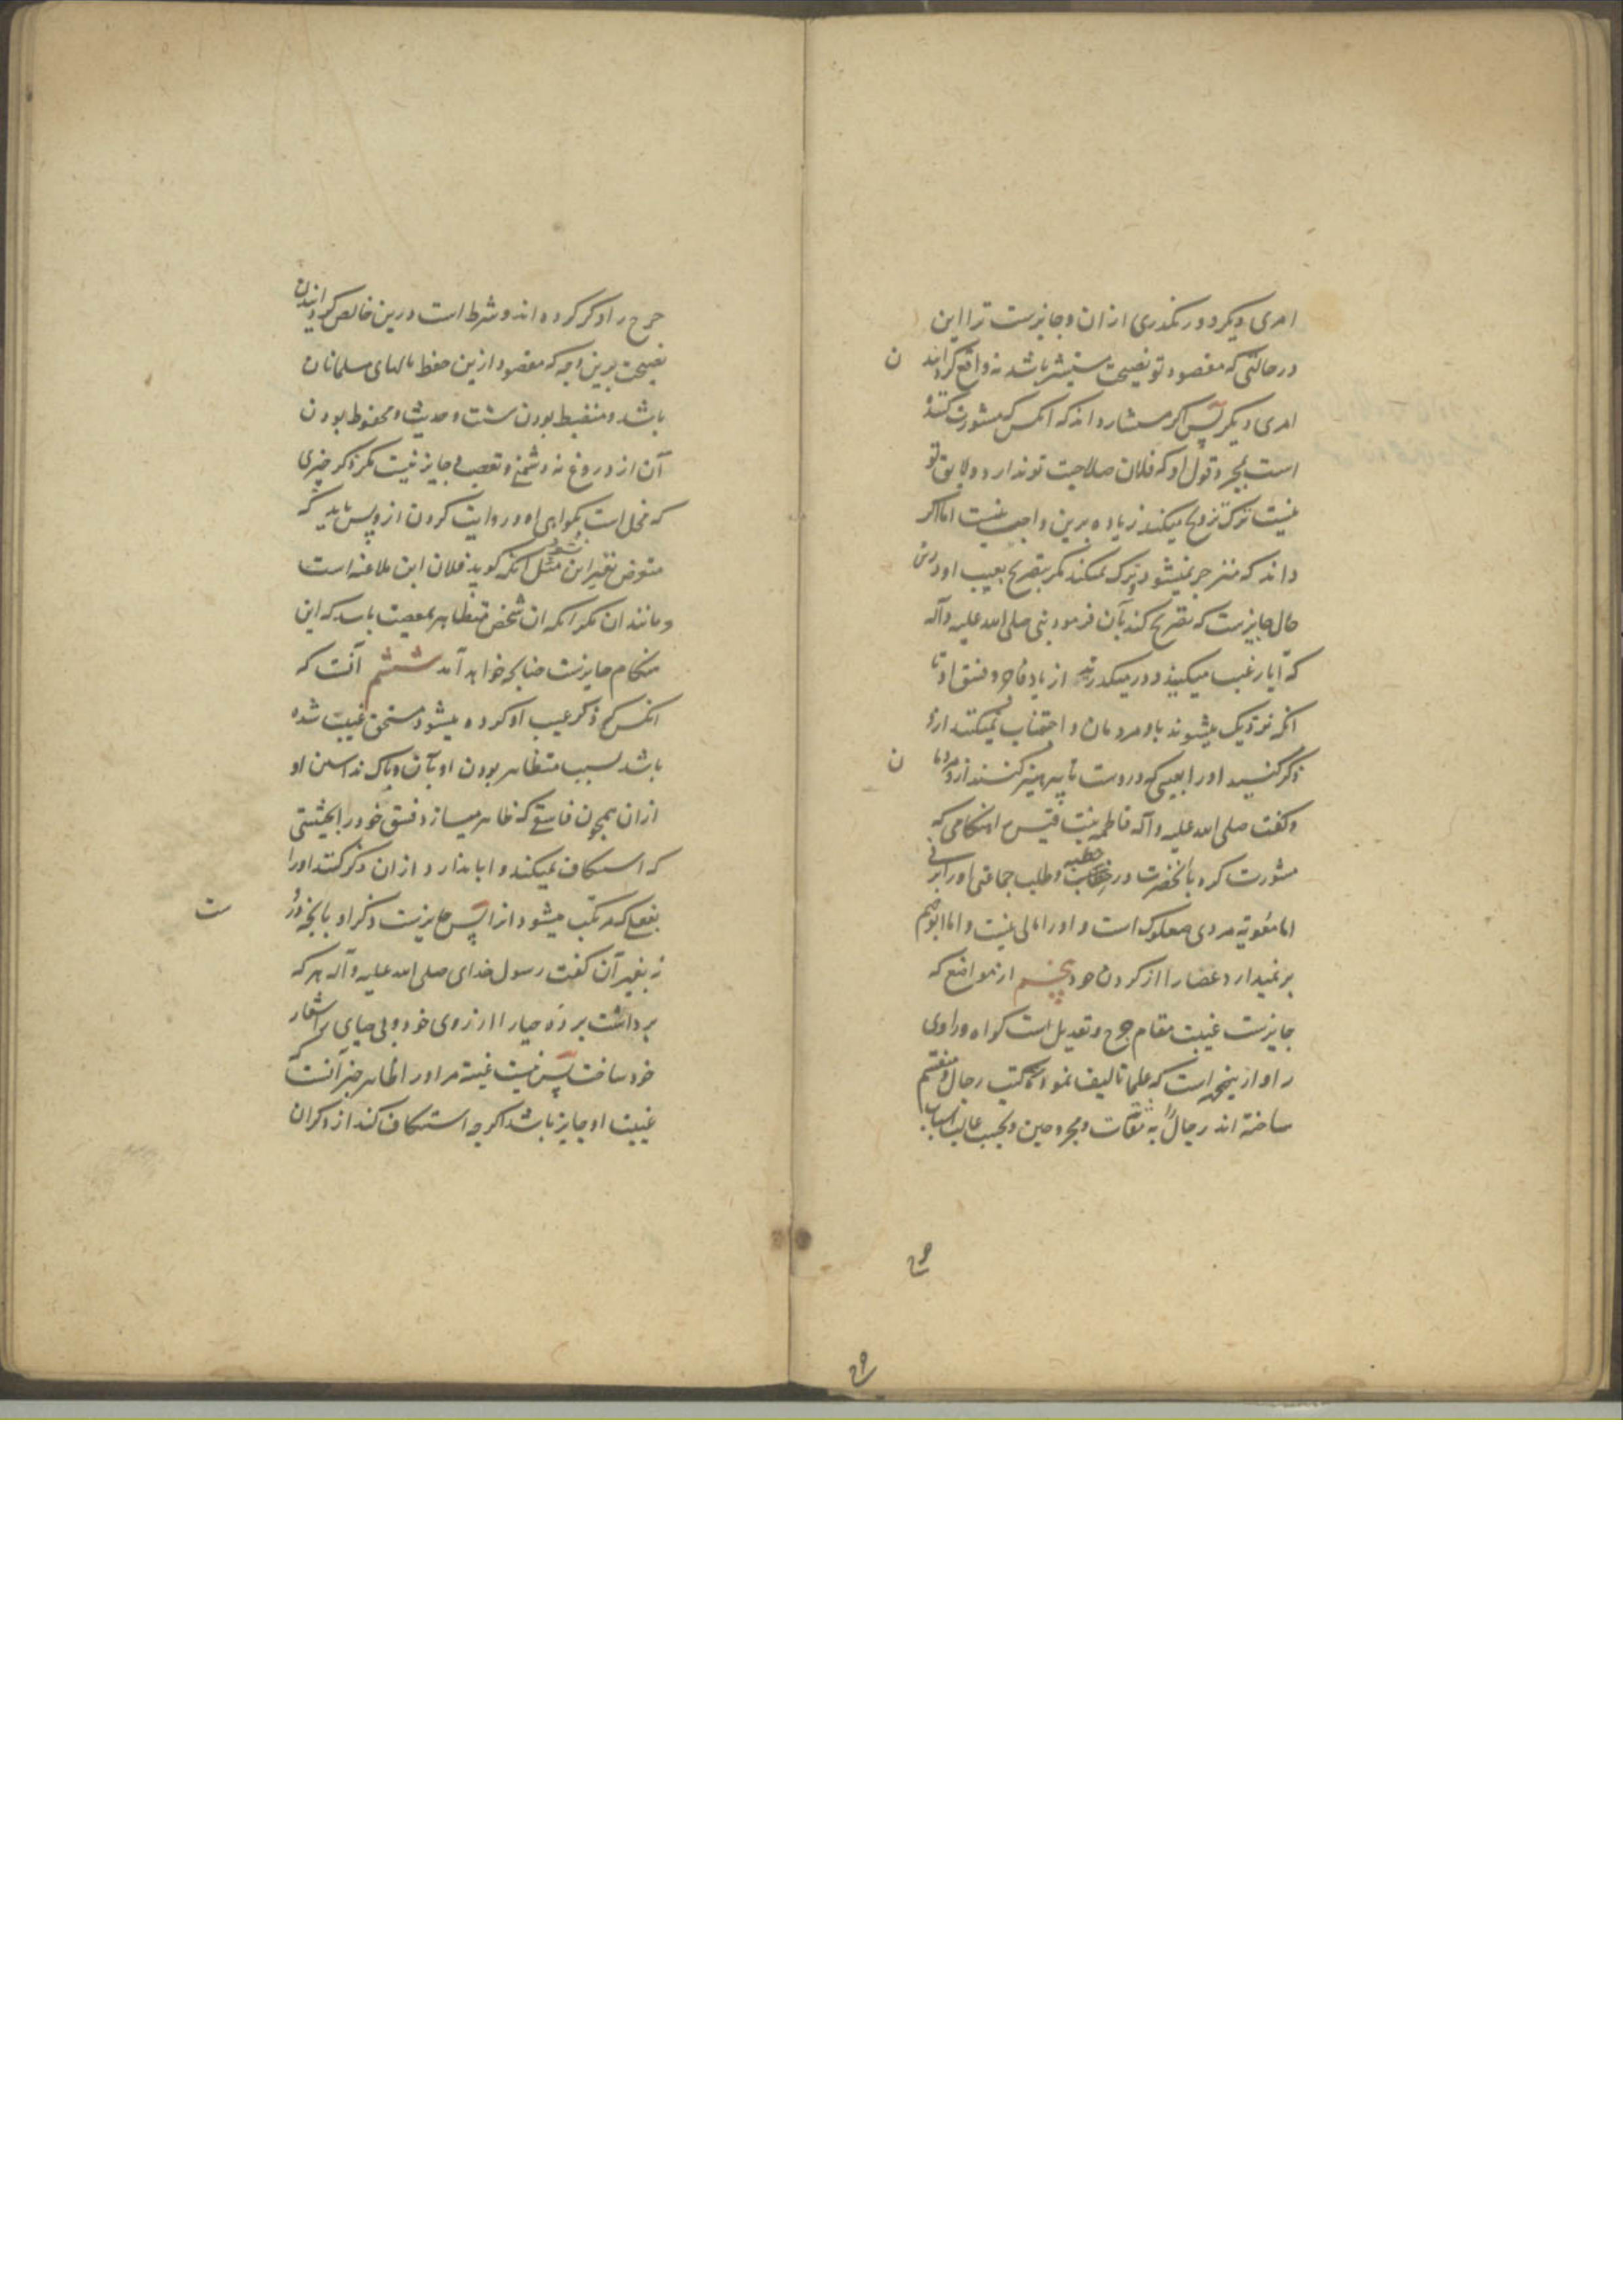 امری دیکر دور نکذری ازان و جایزست ترا این
در حالتی که مقصود تو نصیحت مستشیر باشد نه واقع کردانیدن
امری دیکر پس اکر مستشار داند که انکس که مشورت کننده
است بمجرد قول او که فلان صلاحیت تو ندارد و لایق تو
نیست ترک تزویج میکند زیاده برین واجب نیست اما اکر
داند که منزجر نمیشود و ترک نمیکند مکر بتصریح بعیب او درین
حال جایزست که تصریح کند بآن فرمود نبی صلی الله علیه وآله
که آیا رغبت میکنید و در میکذرید از یاد فاجر و فسق او تا
انکه نزدیک میشوند باو مردمان و اجتناب نمیکنند ازو
ذکر کنید اورا بعیبی که دروست تا پرهیز کنند ازو مردمان
و کفت صلی الله علیه وآله فاطمه بنت قیس را هنکامی که
مشورت کرد بآنحضرت در خطبه و طلب جماعتی اورا برای
اما معویه مردی صعلوک است و اورا مالی نیست و اما ابو جهم
بر نمیدارد عصا را از کردن خود پنجم از مواضع که
جایزست غیبت مقام جرح و تعدیل است کواه و راوی
را و ازینجهت است که علما تالیف نموده‌اند کتب رجال و منقسم
ساخته اند رجال را به ثقات و مجروحین و بحسب غالب اسباب
جرح را ذکر کرده اند و شرط است درین خالص کردانیدن
نصیحت برین وجه که مقصود ازین حفظ مالهای مسلمانان
باشد و منضبط بودن سنت و حدیث و محفوظ بودن
آن از دروغ نه دشمنی و تعصب و جایز نیست مکر ذکر چیزی
که مخل است بکواهی او و روایت کردن ازو پس باید که
متعرض بغیر این نشود مثل انکه کوید فلان ابن ملاعنه است
و مانند ان مکر انکه ان شخص متظاهر بمعصیت باشد که این
هنکام جایزست چنانچه خواهد آمد ششم آنست که
انکس که ذکر عیب او کرده میشود مستحق غیبت شده
باشد بسبب متظاهر بودن او بآن و باک نداشتن او
ازان همچون فاسقی که ظاهر میسازد فسق خود را بحیثیتی
که استنکاف نمیکند و ابا ندارد ازان ذکر کنند اورا
بفعلی که مرتکب میشود انرا پس جایزست ذکر او بانچه دروست
نه بغیر آن کفت رسول خدای صلی الله علیه وآله هر که
برداشت پرده حیا را از روی خود و بی حیایی را شعار
خود ساخت پس نیست غیبة مر اورا و ظاهر خبر آنست که
غیبت او جایز باشد اکرچه استنکاف کند از ذکر ان